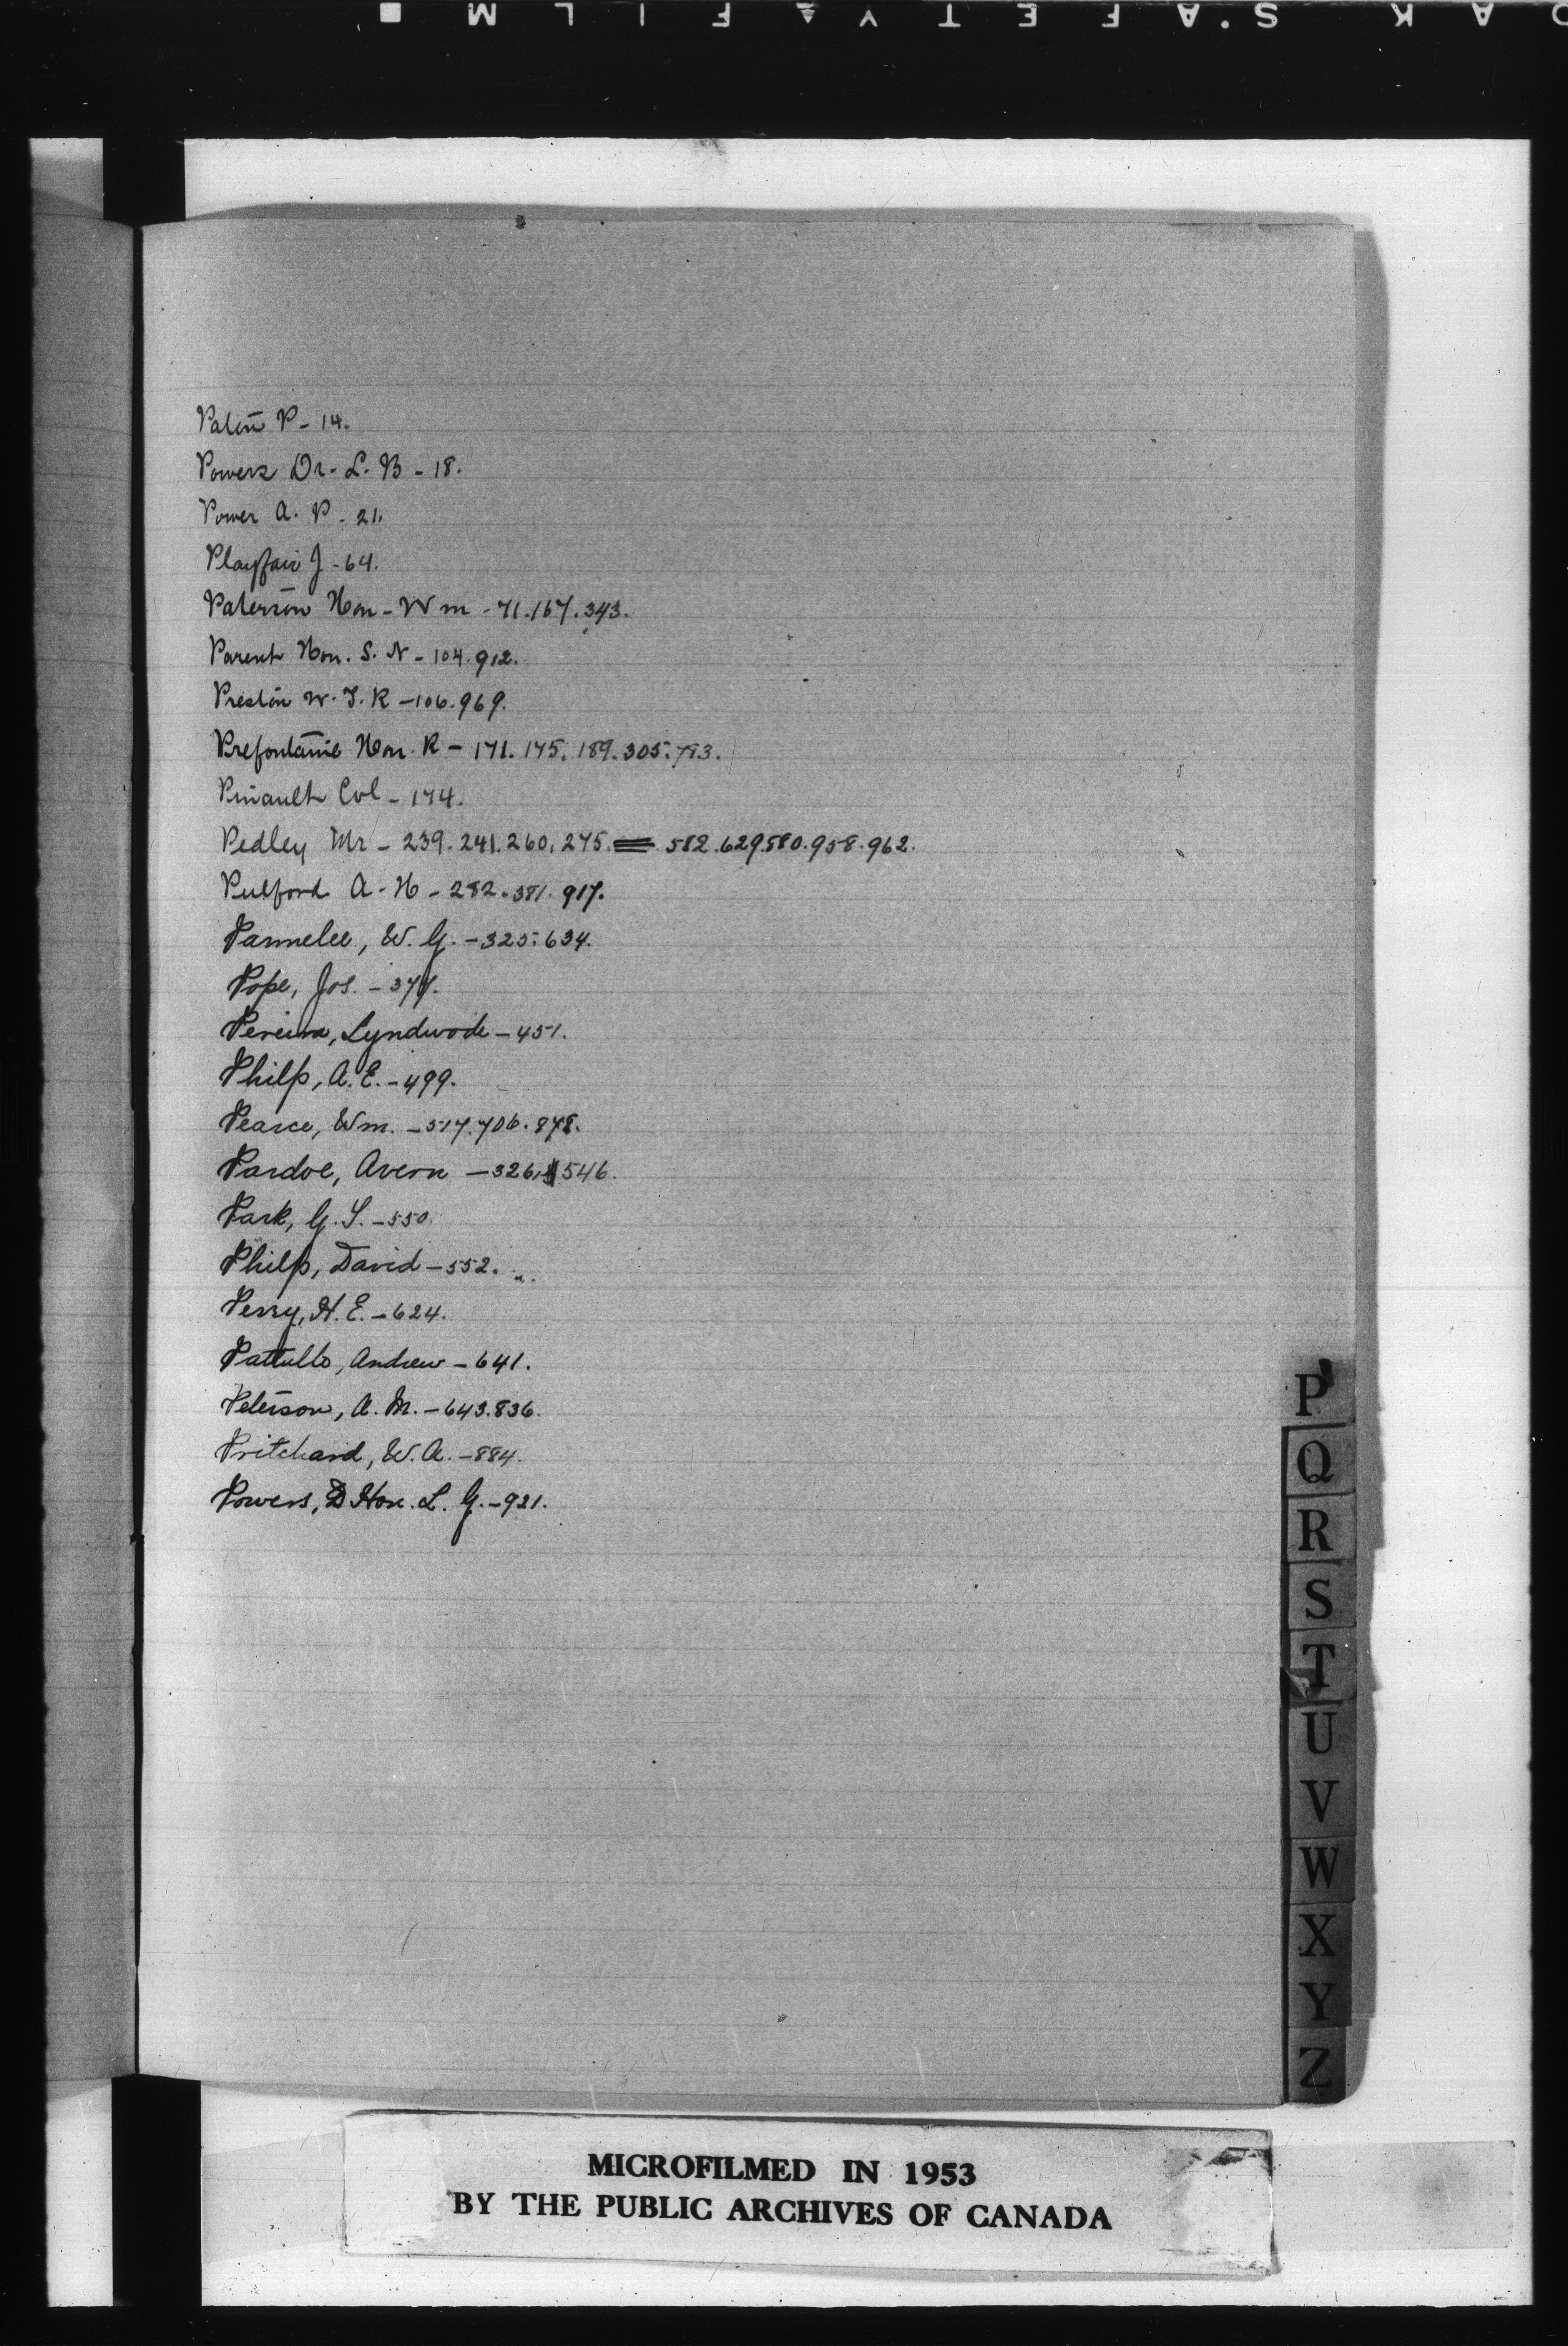 K A K S.A F E T Y ▲ F I L M ■
Paton P - 14.
Powers Dr. L. B - 18.
Power A. P - 21.
Playfair J - 64.
Paterson Hon - Wm - 71. 167. 343.
Parent Hon. S. N - 104. 912.
Preston W. T. R - 106. 969.
Prefontaine Hon. R - 171. 175. 189. 305. 783.
Pinault Col - 174.
Pedley Mr - 239. 241. 260. 275. 582. 629. 580. 958. 962.
Pulford A. H - 282. 381. 917.
Parmelee, W. G. - 325. 634.
Pope, Jos. - 377.
Pereira, Lyndwode - 451.
Philp, A. E. - 499.
Pearce, Wm. - 517. 706. 878.
Pardoe, Avern - 326. 546.
Park, G. S. - 550.
Philp, David - 552.
Perry, H. E. - 624.
Pattullo, Andrew - 641.
Peterson, A. M. - 643. 836.
Pritchard, W. A. - 884.
Powers, Hon. L. G. - 921.
P
Q
R
S
T
U
V
W
X
Y
Z
MICROFILMED IN 1953
BY THE PUBLIC ARCHIVES OF CANADA